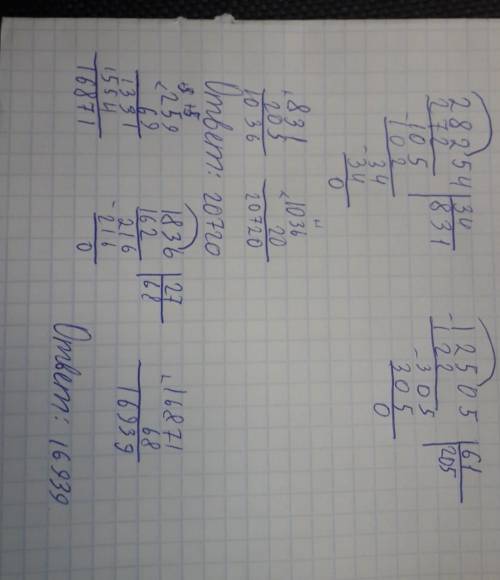 28254 | 34
272 | 831
-105
102
-34
34
0
-12505 | 61
122 | 205
-305
305
0
+831
205
1036
×1036
20
20720
Ответ: 20720
×259
69
1331
1554
16871
1836 | 27
162 | 68
-216
216
0
+16871
68
16939
Ответ: 16939